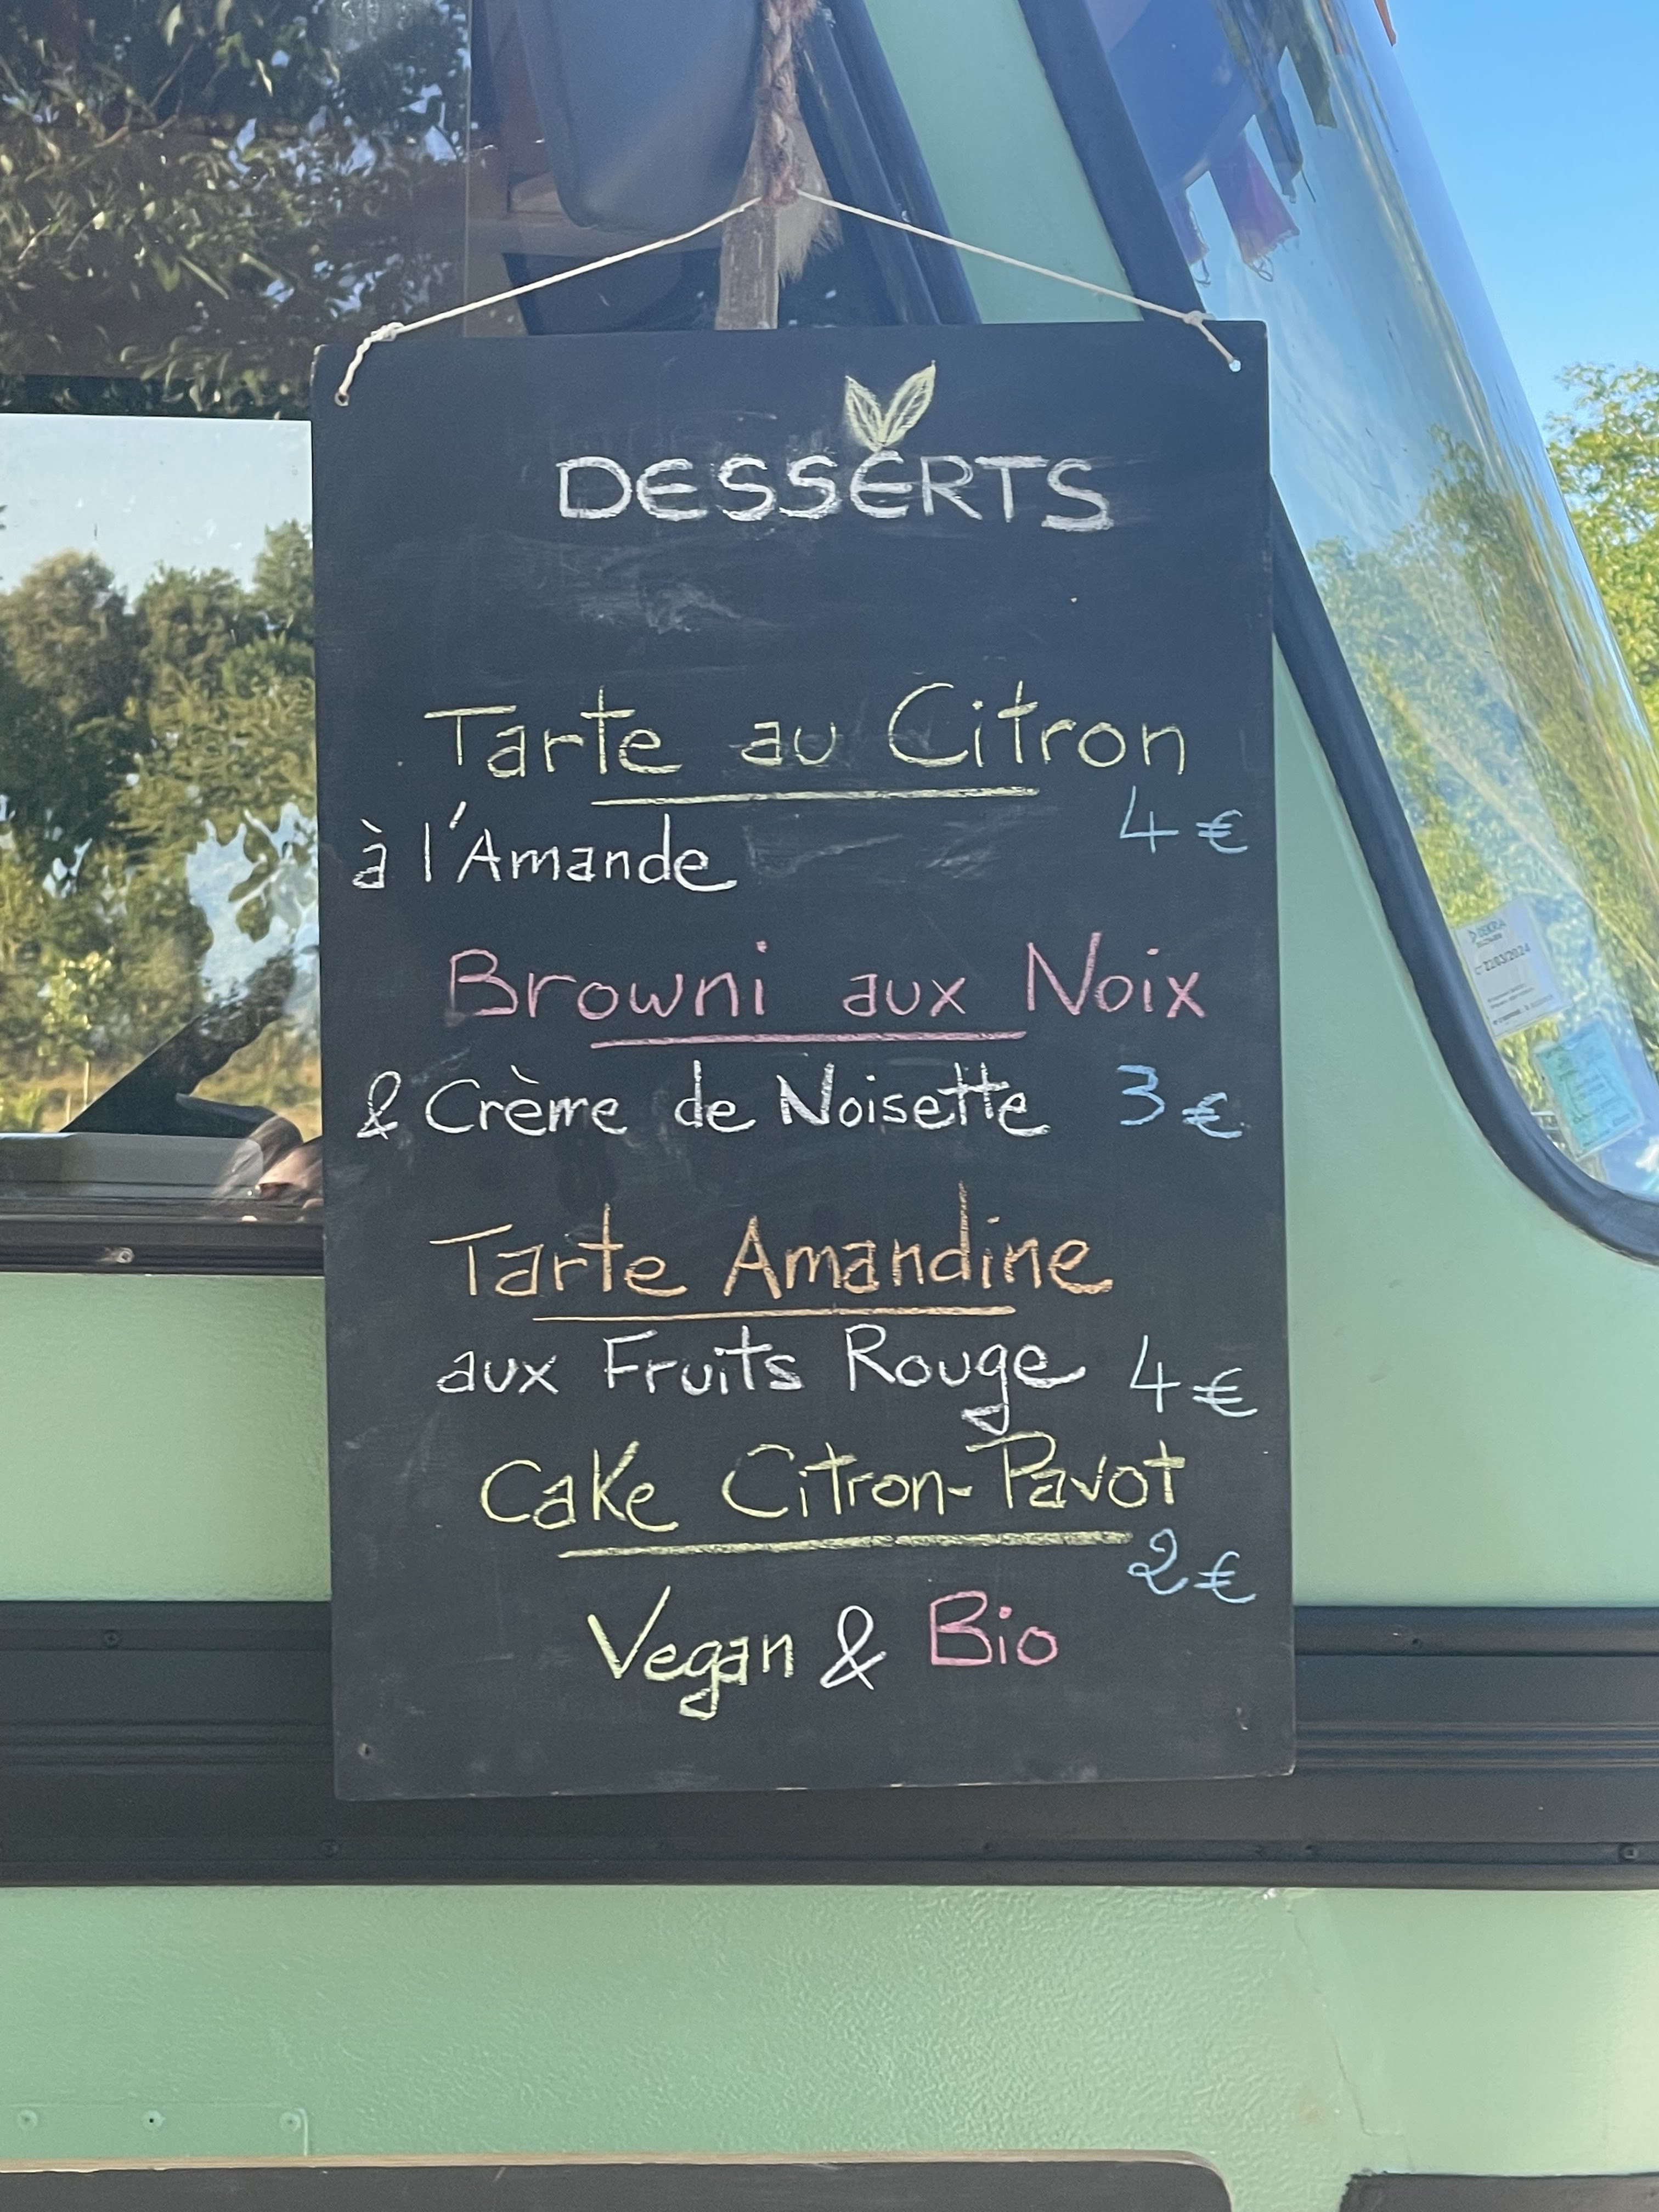 DESSERTS
Tarte au Citron
à l'Amande 4€
Browni aux Noix
& Crème de Noisette 3€
Tarte Amandine
aux Fruits Rouge 4€
Cake Citron-Pavot
2€
Vegan & Bio
DEKRA
2203/2024